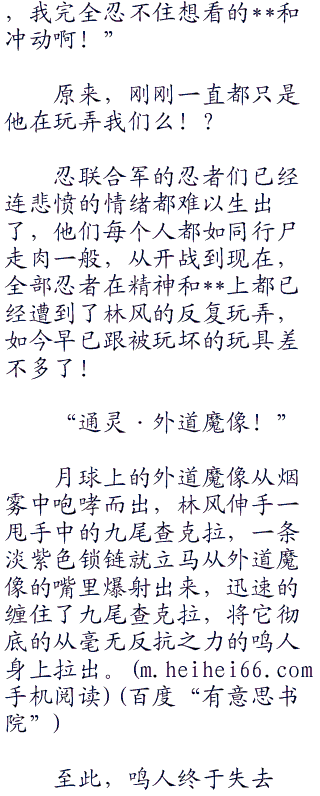 ，我完全忍不住想看的**和
冲动啊！”
原来，刚刚一直都只是
他在玩弄我们么！？
忍联合军的忍者们已经
连悲愤的情绪都难以生出
了，他们每个人都如同行尸
走肉一般，从开战到现在，
全部忍者在精神和**上都已
经遭到了林风的反复玩弄，
如今早已跟被玩坏的玩具差
不多了！
“通灵·外道魔像！”
月球上的外道魔像从烟
雾中咆哮而出，林风伸手一
甩手中的九尾查克拉，一条
淡紫色锁链就立马从外道魔
像的嘴里爆射出来，迅速的
缠住了九尾查克拉，将它彻
底的从毫无反抗之力的鸣人
身上拉出。(m.heihei66.com
手机阅读)(百度“有意思书
院”)
至此，鸣人终于失去